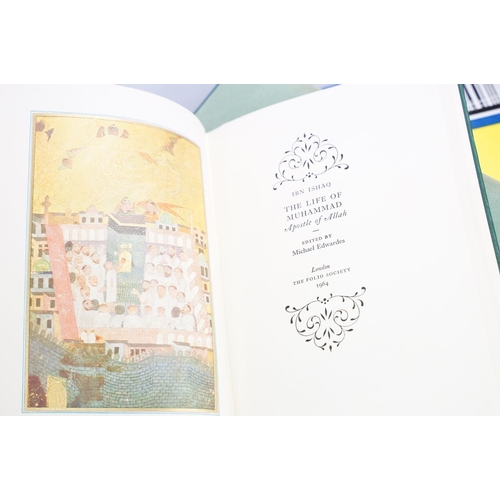 IBN ISHAQ
THE LIFE OF
MUHAMMAD
Apostle of Allah
EDITED BY
Michael Edwardes
London
THE FOLIO SOCIETY
1964